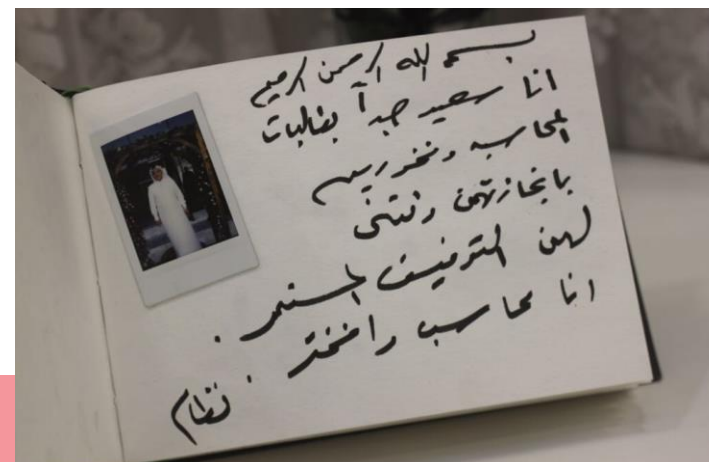 بسم الله الرحمن الرحيم
انا سعيد جداً بطالبات
المحاسبه وفخورين
بانجازتهن ونتمنى
لهن التوفيق المستمر .
انا محاسب وافتخر .
نظام